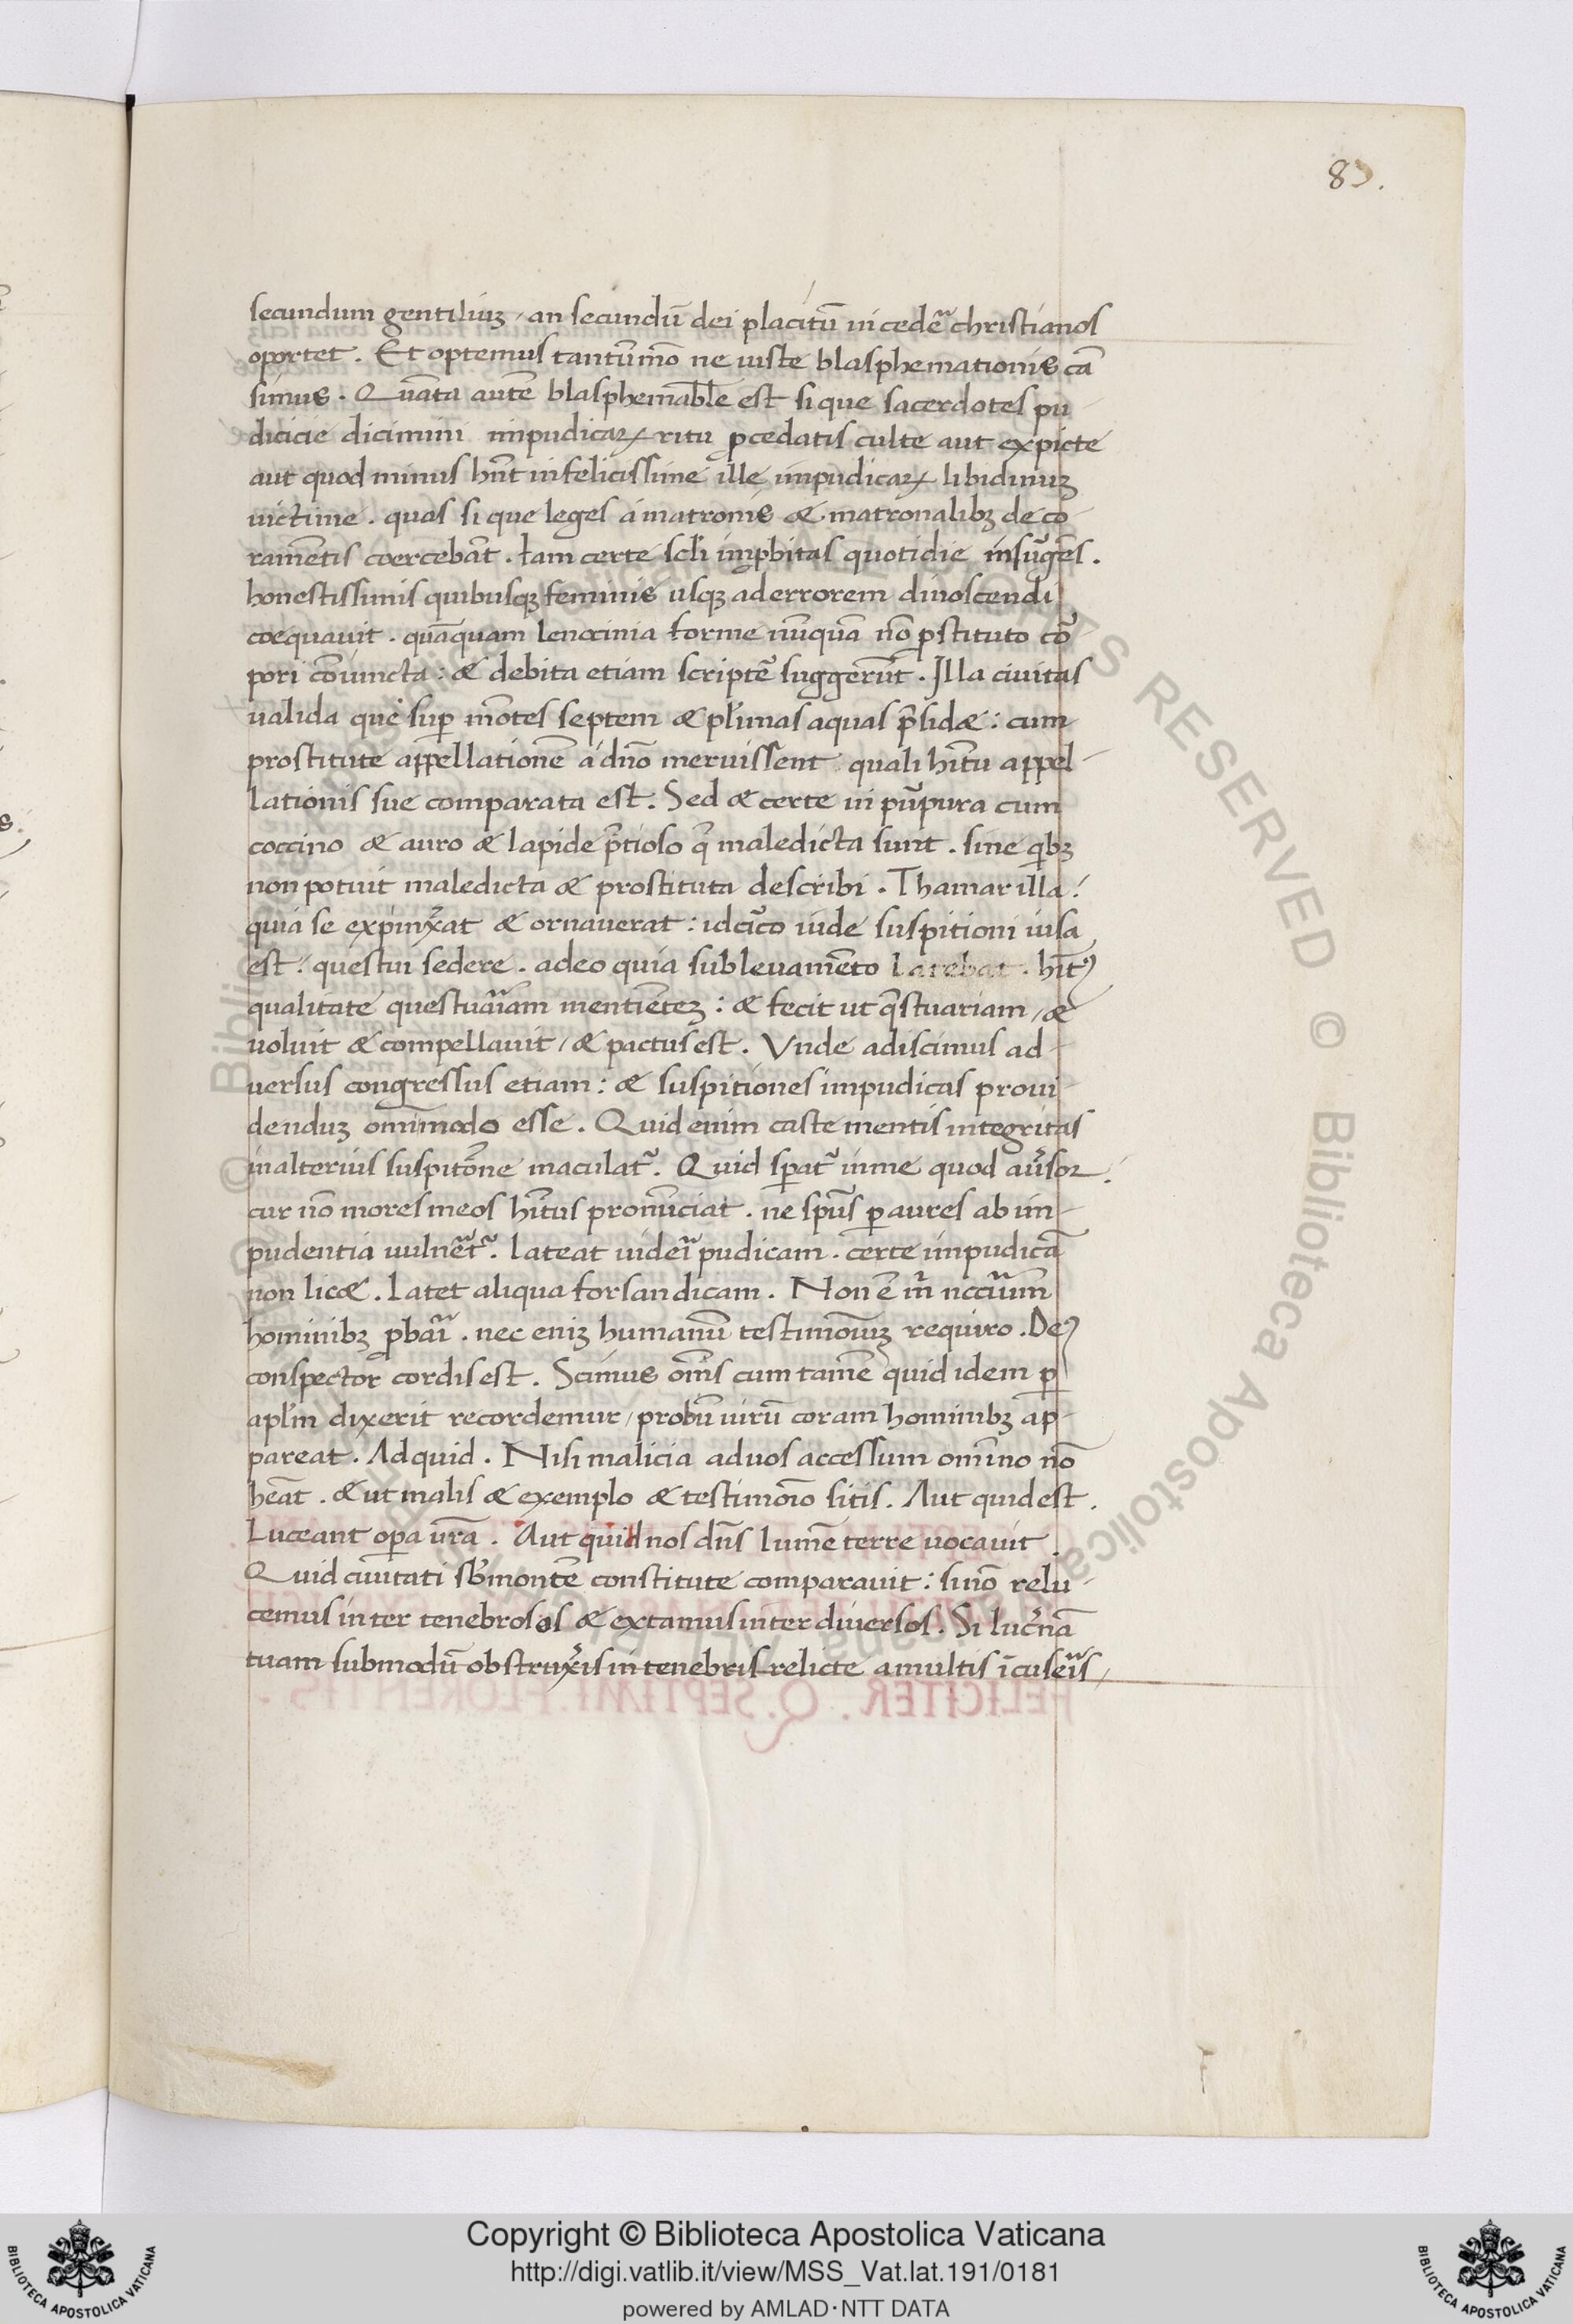 83.
secundum gentiliuʒ. an secundū dei placitū incedẽ christianos
oportet. Et optemus tantūmō ne iuste blasphemationis cā
simus. Quāta autē blasphemabl̄e est si que sacerdotes pu-
dicicie dicimini impudicaꝝ ritu ꝓcedatis culte aut expicte
aut quod minus hn̄t infelicissime ille impudicaꝝ libidinuʒ
uictime. quas si que leges á matronis & matronalibʒ deco-
ramētis coercebāt. Iam certe scl̄i imꝓbitas quotidie insũgēs.
honestissimis quibusqʒ feminis usqʒ ad errorem dinoscendi
coequauit. quāquam lenocinia forme nūquā nō ꝓstituto cõ-
pori cōiuncta: & debita etiam scriptẽ suggerūt. Illa ciuitas
ualida que suꝑ mōtes septem & pl'imas aquas p̄sid&: cum
prostitute appellationē á dn̄o meruissent quali hītu appel-
lationis sue comparata est. Sed & certe in pũpura cum
coccino & auro & lapide p̄tioso q̄ maledicta sunt. sine qibʒ
non potuit maledicta & prostituta describi. Thamar illa:
quia se expinx̃at & ornauerat: idcĩco iude suspitioni uisa
est: questui sedere. adeo quia sub leuamēto latebat. hītꝰ
qualitate questuãiam mentiēteʒ: & fecit ut q̄stuariam, &
uoluit & compellauit, & pactus est. Vnde adiscimus ad-
uersus congressus etiam: & suspitiones impudicas proui-
denduʒ omīmodo esse. Quid enim caste mentis integritas
in alterius suspitōne maculat̃. Quid sꝑat̃ in me quod aũsor.
cur nō mores meos hītus pronūciat. ne spūs ꝑ aures ab im-
pudentia uulnẽt̃. lateat uidẽi pudicam. certe impudicā
non lic&. latet aliqua forsan dicam. Non ē m̄ nccãium
hominibʒ ꝓbãi. nec eniʒ humanū testimoniuʒ requiro. Deꝰ
conspector cordis est. Scimus om̄s cum tamē quid idem ꝑ
apl'm dixerit recordemur, probūuirū coram hominibʒ ap-
pareat. Ad quid. Nisi malicia ad uos accessum omīno nō
hēat. & ut malis & exemplo & testimōio sitis. Aut quid est.
Luceant oꝑa urā. Aut quid nos dn̄s lumē terre uocauit.
Quid ciuitati sb̄ montē constitute comparauit: si nō relu-
cemus inter tenebrosos & extamus inter diuersos. Si luc̃nā
tuam sub modū obstrux̃is in tenebris relicte a multis īcusẽis,
Copyright © Biblioteca Apostolica Vaticana
http://digi.vatlib.it/view/MSS_Vat.lat.191/0181
powered by AMLAD·NTT DATA